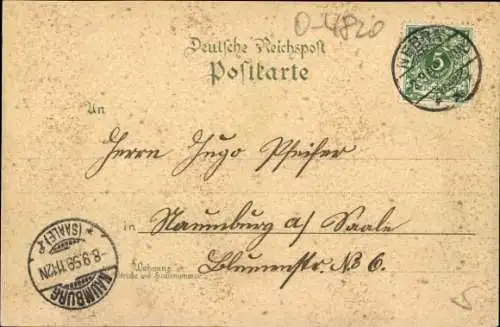 O-4820
Deutsche Reichspost
Postkarte
NEBRA
5
An
Herrn Hugo Pfeifer
in Naumburg a/ Saale
Wohnung
Straße und Hausnummer
Blumenstr. No 6.
NAUMBURG
* (SAALE)
8.9.98.11-12N